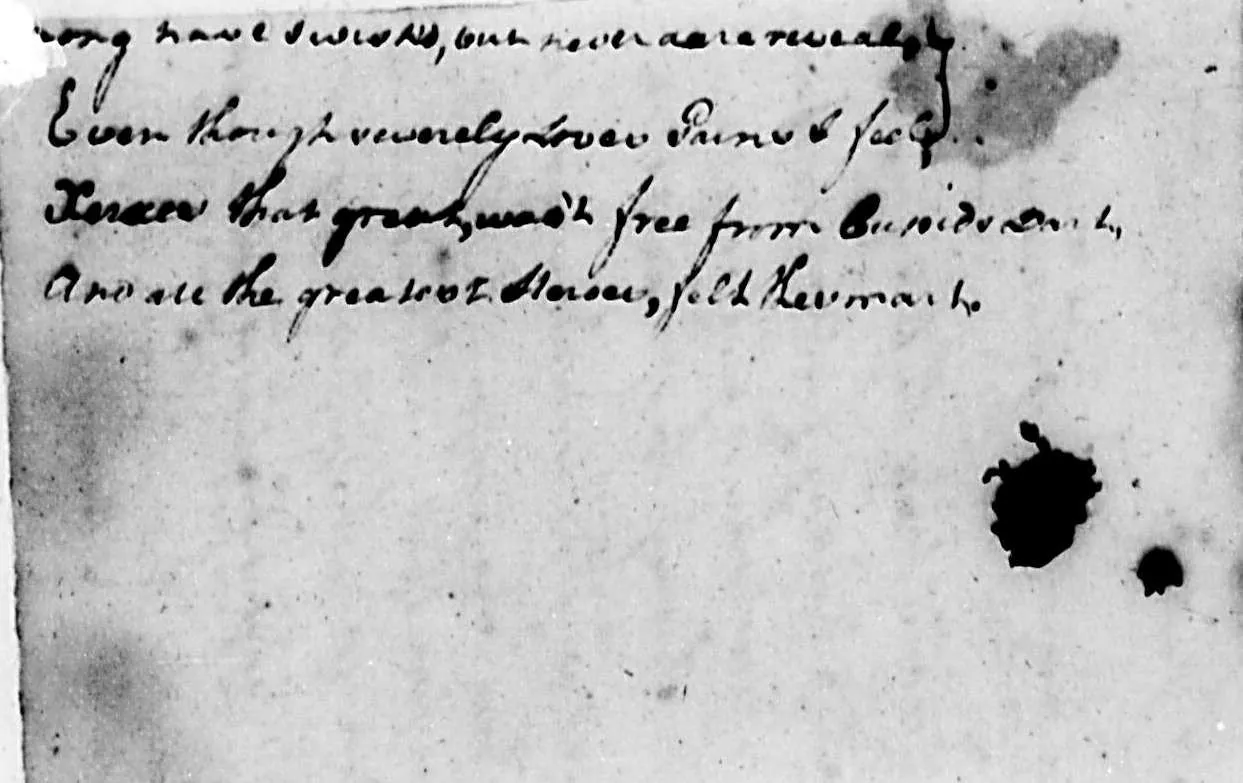 long have I wish'd, but never dare reveal,
Even though severely Loves Pains I feel,
Xerxes that great, was't free from Cupids Dart,
And all the greatest Heroes, felt the smart.